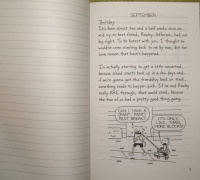 SEPTEMBER
Thursday
It's been almost two and a half weeks since me
and my ex-best friend, Rowley Jefferson, had our
big fight. To be honest with you, I thought he
would've come crawling back to me by now, but for
some reason, that hasn't happened.
I'm actually starting to get a little concerned,
because school starts back up in a few days, and
if we're gonna get this friendship back on track,
something needs to happen quick. If me and Rowley
really ARE through, that would stink, because
the two of us had a pretty good thing going.
CAN I TAKE A
REST BREAK?
IT'S ONLY
THREE
MORE BLOCKS!
1